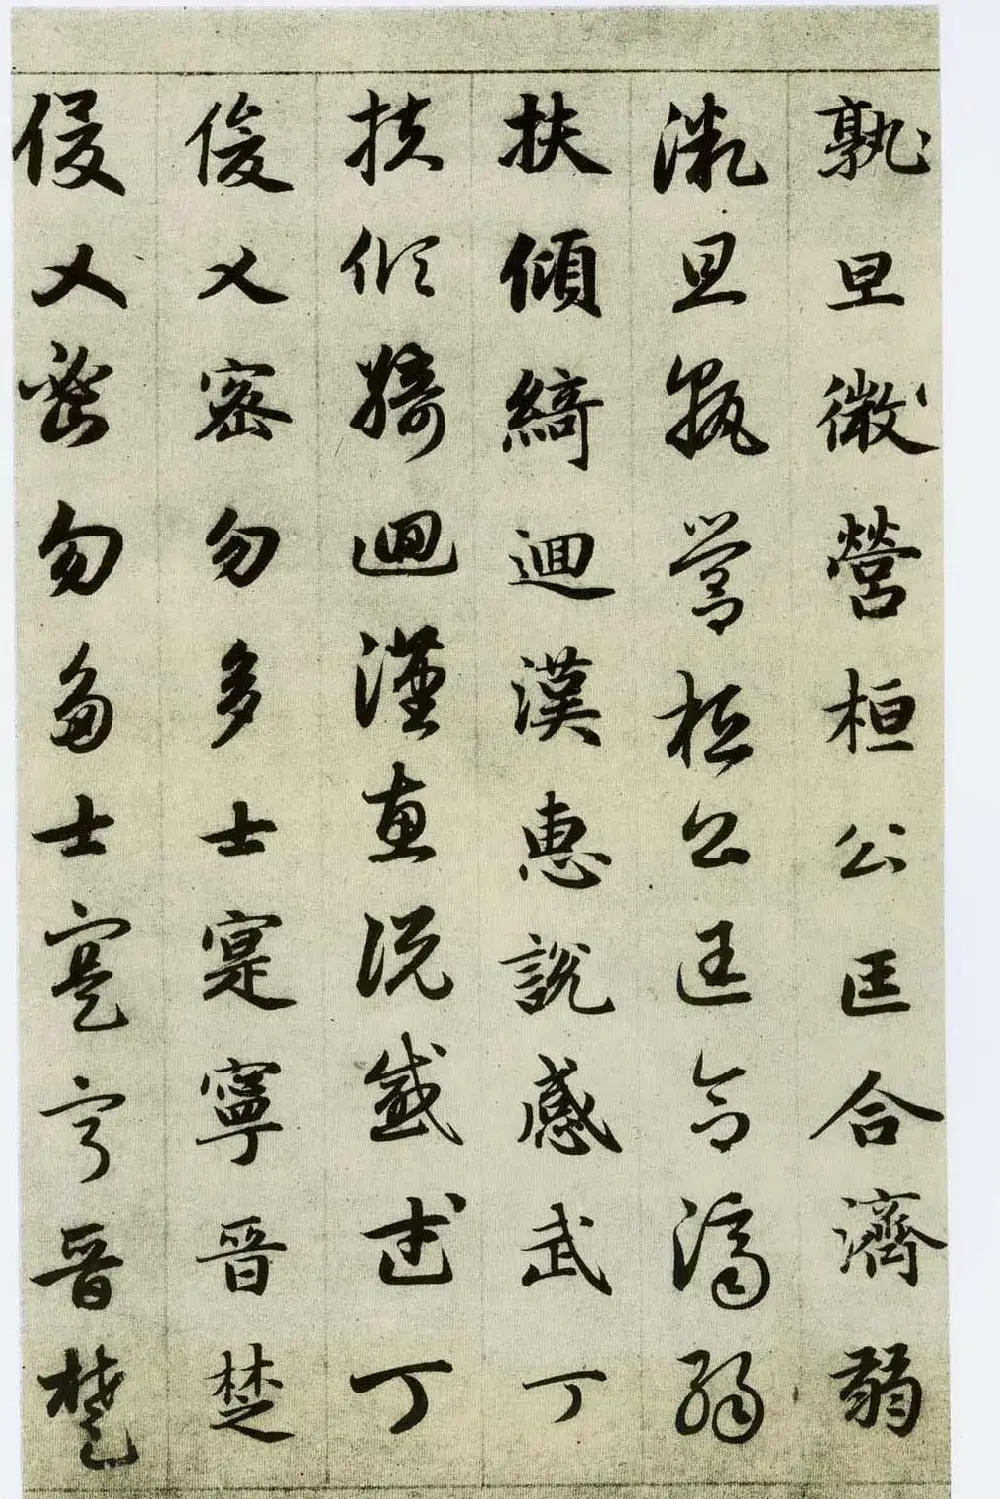 孰旦微營桓公匡合濟弱
微旦孰營桓公匡合濟弱
扶傾綺迴漢惠說感武丁
扶傾綺迴漢惠說感武丁
俊乂密勿多士寔寧晉楚
俊乂密勿多士寔寧晉楚